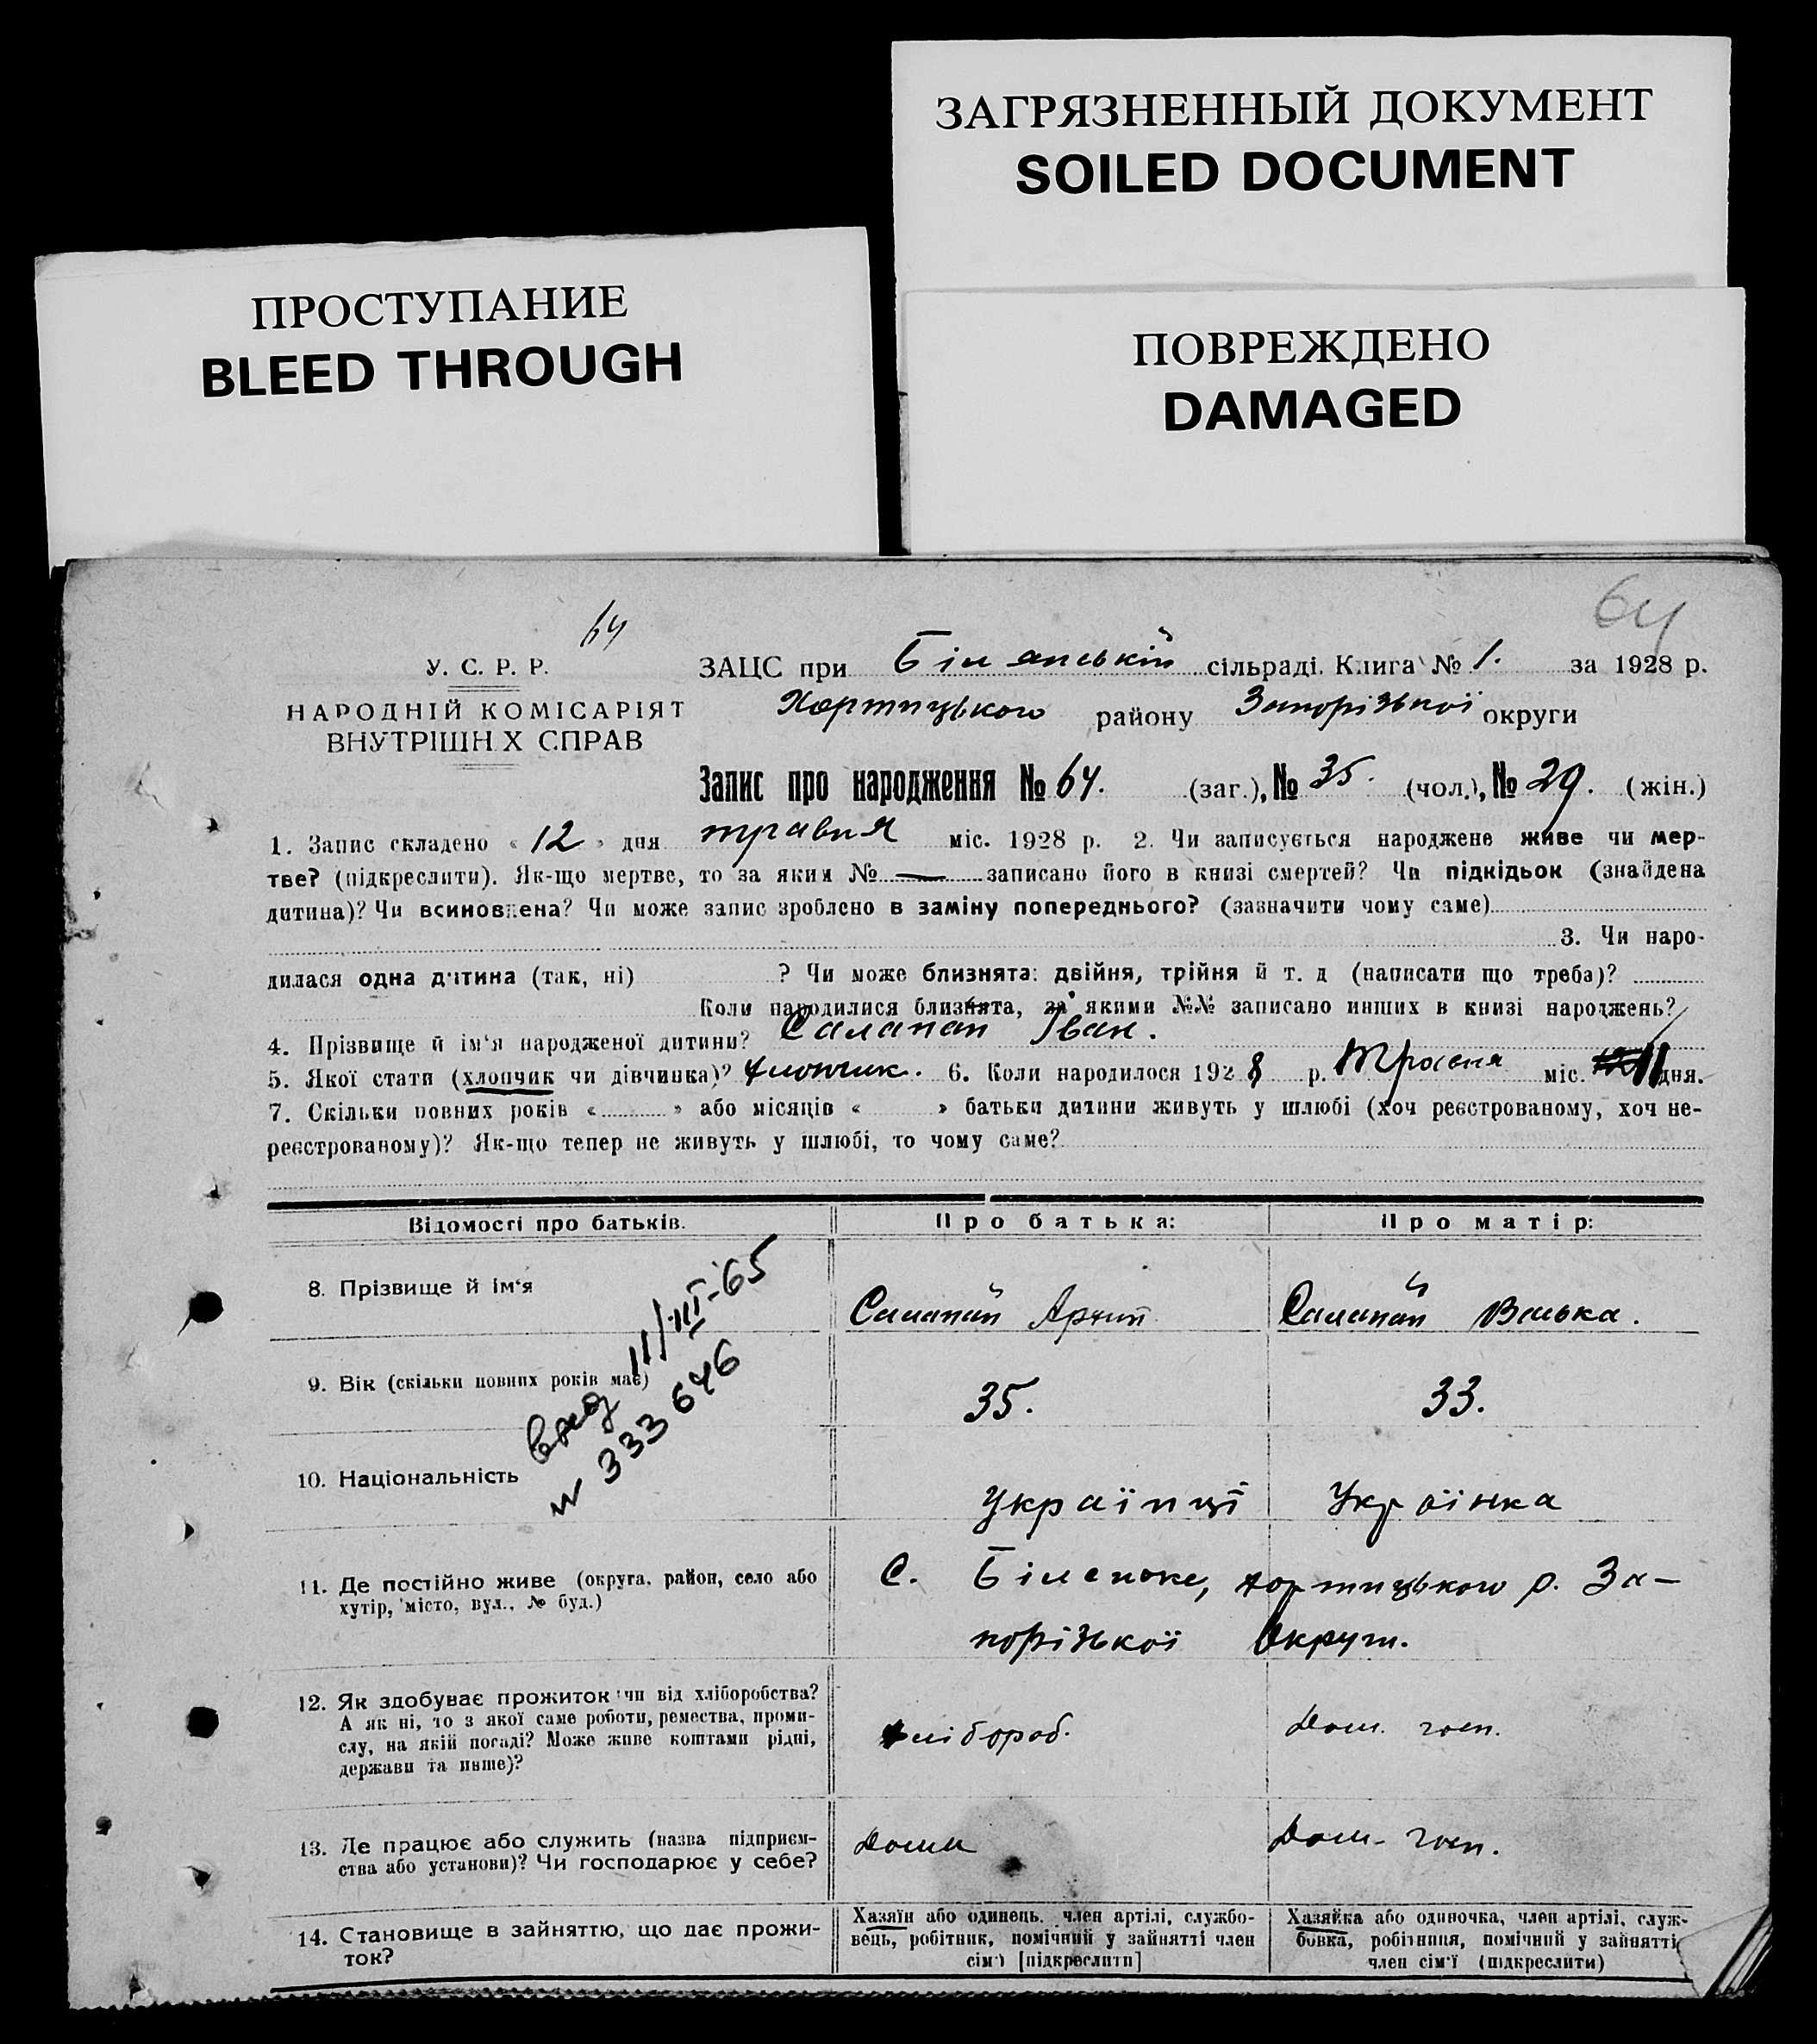 ЗАГРЯЗНЕННЫЙ ДОКУМЕНТ
SOILED DOCUMENT
ПРОСТУПАНИЕ
BLEED THROUGH
ПОВРЕЖДЕНО
DAMAGED
64
64
У. С. Р. Р.
НАРОДНІЙ КОМІСАРІЯТ
ВНУТРІШН Х СПРАВ
ЗАЦС при Біленській сільраді. Книга № 1. за 1928 р.
Хортицького району Запорізької округи
Запис про народження № 64. (заг.), № 35. (чол.), № 29. (жін.)
1. Запис складено « 12 » дня травня міс. 1928 р. 2. Чи записується народжене живе чи мер-
тве? (підкреслити). Як-що мертве, то за яким № — записано його в книзі смертей? Чи підкідьок (знайдена
дитина)? Чи всиновлена? Чи може запис зроблено в заміну попереднього? (зазначити чому саме)
3. Чи наро-
дилася одна дитина (так, ні) ? Чи може близнята: двійня, трійня й т. д (написати що треба)?
Коли народилися близнята, за якими №№ записано инших в книзі народжень?
4. Прізвище й ім'я народженої дитини? Салапай Іван.
5. Якої стати (хлопчик чи дівчинка)? хлопчик. 6. Коли народилося 1928 р. Травня міс. 11 дня.
7. Скільки повних років « » або місяців « » батьки дитини живуть у шлюбі (хоч реєстрованому, хоч не-
реєстрованому)? Як-що тепер не живуть у шлюбі, то чому саме?
Відомості про батьків. Про батька: Про матір:
8. Прізвище й ім'я Салапай Архип Салапай Васька.
11/III-65
№ 333646
9. Вік (скільки повних років має) 35. 33.
10. Національність Українці Українка
11. Де постійно живе (округа, район, село або
хутір, місто, вул., № буд.)
С. Біленьке, Хортицького р. За-
порізької Округи.
12. Як здобуває прожиток чи від хліборобства?
А як ні, то з якої саме роботи, ремества, проми-
слу, на якій посаді? Може живе коштами рідні,
держави та инше)?
хлібороб. Дом. госп.
13. Де працює або служить (назва підприєм-
ства або установи)? Чи господарює у себе?
дома Дом. госп.
14. Становище в зайняттю, що дає прожи-
ток?
Хазяїн або одинець, член артілі, службо-
вець, робітник, помічний у зайнятті член
сім'ї [підкреслити]
Хазяйка або одиночка, член артілі, служ-
бовка, робітниця, помічний у зайнятті
член сім'ї (підкреслити)